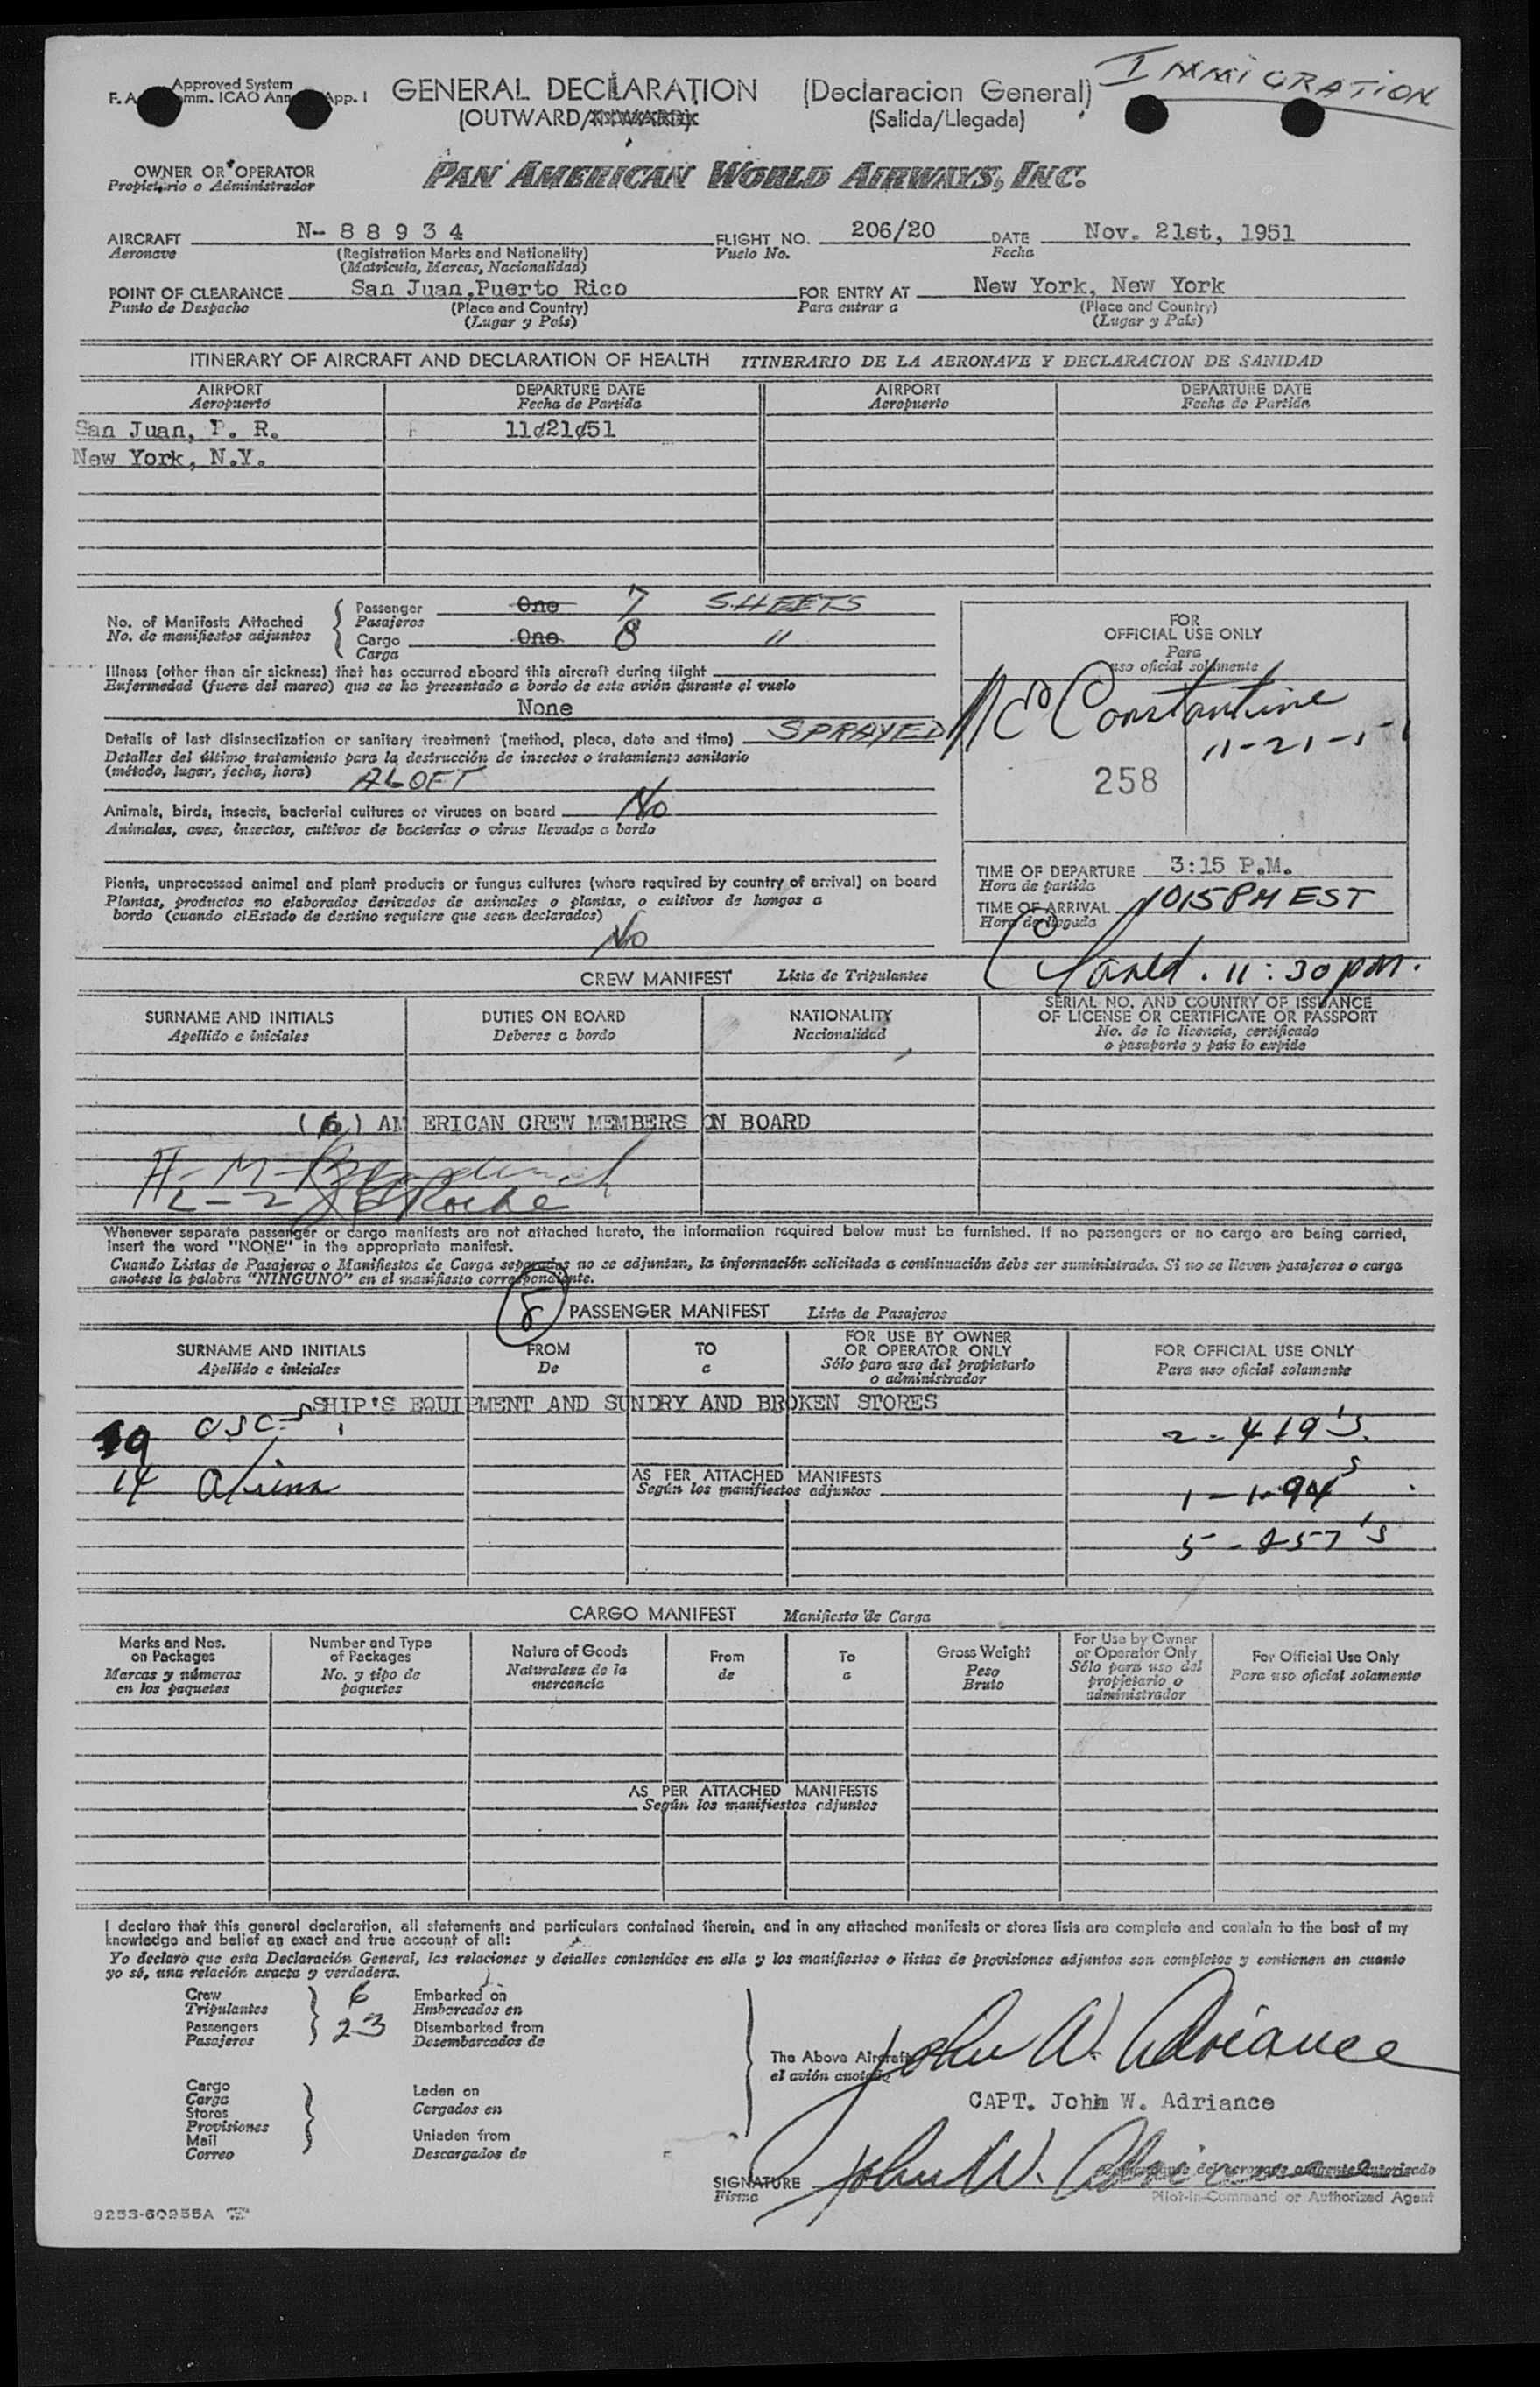 IMMIGRATION
Approved System
F. A mm. ICAO Ann App. I
GENERAL DECLARATION (Declaracion General)
(OUTWARD/INWARD) (Salida/Llegada)
OWNER OR OPERATOR
Propietario o Administrador
PAN AMERICAN WORLD AIRWAYS, INC.
AIRCRAFT N- 8 8 9 3 4 FLIGHT NO. 206/20 DATE Nov. 21st, 1951
Aeronave (Registration Marks and Nationality) Vuelo No. Fecha
(Matricula, Marcas, Nacionalidad)
POINT OF CLEARANCE San Juan,Puerto Rico FOR ENTRY AT New York, New York
Punto de Despacho (Place and Country) Para entrar a (Place and Country)
(Lugar y País) (Lugar y País)
ITINERARY OF AIRCRAFT AND DECLARATION OF HEALTH ITINERARIO DE LA AERONAVE Y DECLARACION DE SANIDAD
AIRPORT DEPARTURE DATE AIRPORT DEPARTURE DATE
Aeropuerto Fecha de Partida Aeropuerto Fecha de Partida
San Juan, P. R. 11¢21¢51
New York, N.Y.
No. of Manifests Attached
No. de manifiestos adjuntos
Passenger One 7 SHEETS
Pasajeros
Cargo One 8 "
Carga
Illness (other than air sickness) that has occurred aboard this aircraft during flight
Enfermedad (fuera del mareo) que se ha presentado a bordo de este avión durante el vuelo
None
Details of last disinsectization or sanitary treatment (method, place, date and time) SPRAYED
Detalles del último tratamiento para la destrucción de insectos o tratamiento sanitario
(método, lugar, fecha, hora) ALOFT
Animals, birds, insects, bacterial cultures or viruses on board No
Animales, aves, insectos, cultivos de bacterias o virus llevados a bordo
Plants, unprocessed animal and plant products or fungus cultures (where required by country of arrival) on board
Plantas, productos no elaborados derivados de animales o plantas, o cultivos de hongos a
bordo (cuando elEstado de destino requiere que sean declarados)
No
FOR
OFFICIAL USE ONLY
Para
uso oficial solamente
Constantine
11-21-51
258
TIME OF DEPARTURE 3:15 P.M.
Hora de partida
TIME OF ARRIVAL 1015PM EST
Hora de llegada
11:30 pm.
CREW MANIFEST Lista de Tripulantes
SURNAME AND INITIALS DUTIES ON BOARD NATIONALITY SERIAL NO. AND COUNTRY OF ISSUANCE
OF LICENSE OR CERTIFICATE OR PASSPORT
Apellido e iniciales Deberes a bordo Nacionalidad No. de la licencia, certificado
o pasaporte y país lo expide
(6) AMERICAN CREW MEMBERS ON BOARD
Whenever separate passenger or cargo manifests are not attached hereto, the information required below must be furnished. If no passengers or no cargo are being carried,
insert the word "NONE" in the appropriate manifest.
Cuando Listas de Pasajeros o Manifiestos de Carga separados no se adjuntan, la información solicitada a continuación debe ser suministrada. Si no se lleven pasajeros o carga
anotese la palabra "NINGUNO" en el manifiesto correspondiente.
8
PASSENGER MANIFEST Lista de Pasajeros
SURNAME AND INITIALS FROM TO FOR USE BY OWNER
OR OPERATOR ONLY FOR OFFICIAL USE ONLY
Apellido e iniciales De a Sólo para uso del propietario
o administrador Para uso oficial solamente
SHIP'S EQUIPMENT AND SUNDRY AND BROKEN STORES
USC 2-419's
14 Aliens
AS PER ATTACHED MANIFESTS
Según los manifiestos adjuntos
1-1-94's
5-257's
CARGO MANIFEST Manifiesto de Carga
Marks and Nos.
on Packages
Marcas y números
en los paquetes
Number and Type
of Packages
No. y tipo de
paquetes
Nature of Goods
Naturaleza de la
mercancía
From
de
To
a
Gross Weight
Peso
Bruto
For Use by Owner
or Operator Only
Sólo para uso del
propietario o
administrador
For Official Use Only
Para uso oficial solamente
AS PER ATTACHED MANIFESTS
Según los manifiestos adjuntos
I declare that this general declaration, all statements and particulars contained therein, and in any attached manifests or stores lists are complete and contain to the best of my
knowledge and belief an exact and true account of all:
Yo declaro que esta Declaración General, las relaciones y detalles contenidos en ella y los manifiestos o listas de provisiones adjuntos son completos y contienen en cuanto
yo sé, una relación exacta y verdadera.
Crew 6 Embarked on
Tripulantes Embarcados en
Passengers 23 Disembarked from
Pasajeros Desembarcados de
Cargo
Carga
Stores
Provisiones
Mail
Correo
Laden on
Cargados en
Unladen from
Descargados de
The Above Aircraft
el avión anotado
John W. Adriance
CAPT. John W. Adriance
SIGNATURE John W. Adriance
Firma
Pilot-in-Command or Authorized Agent
9253-60955A